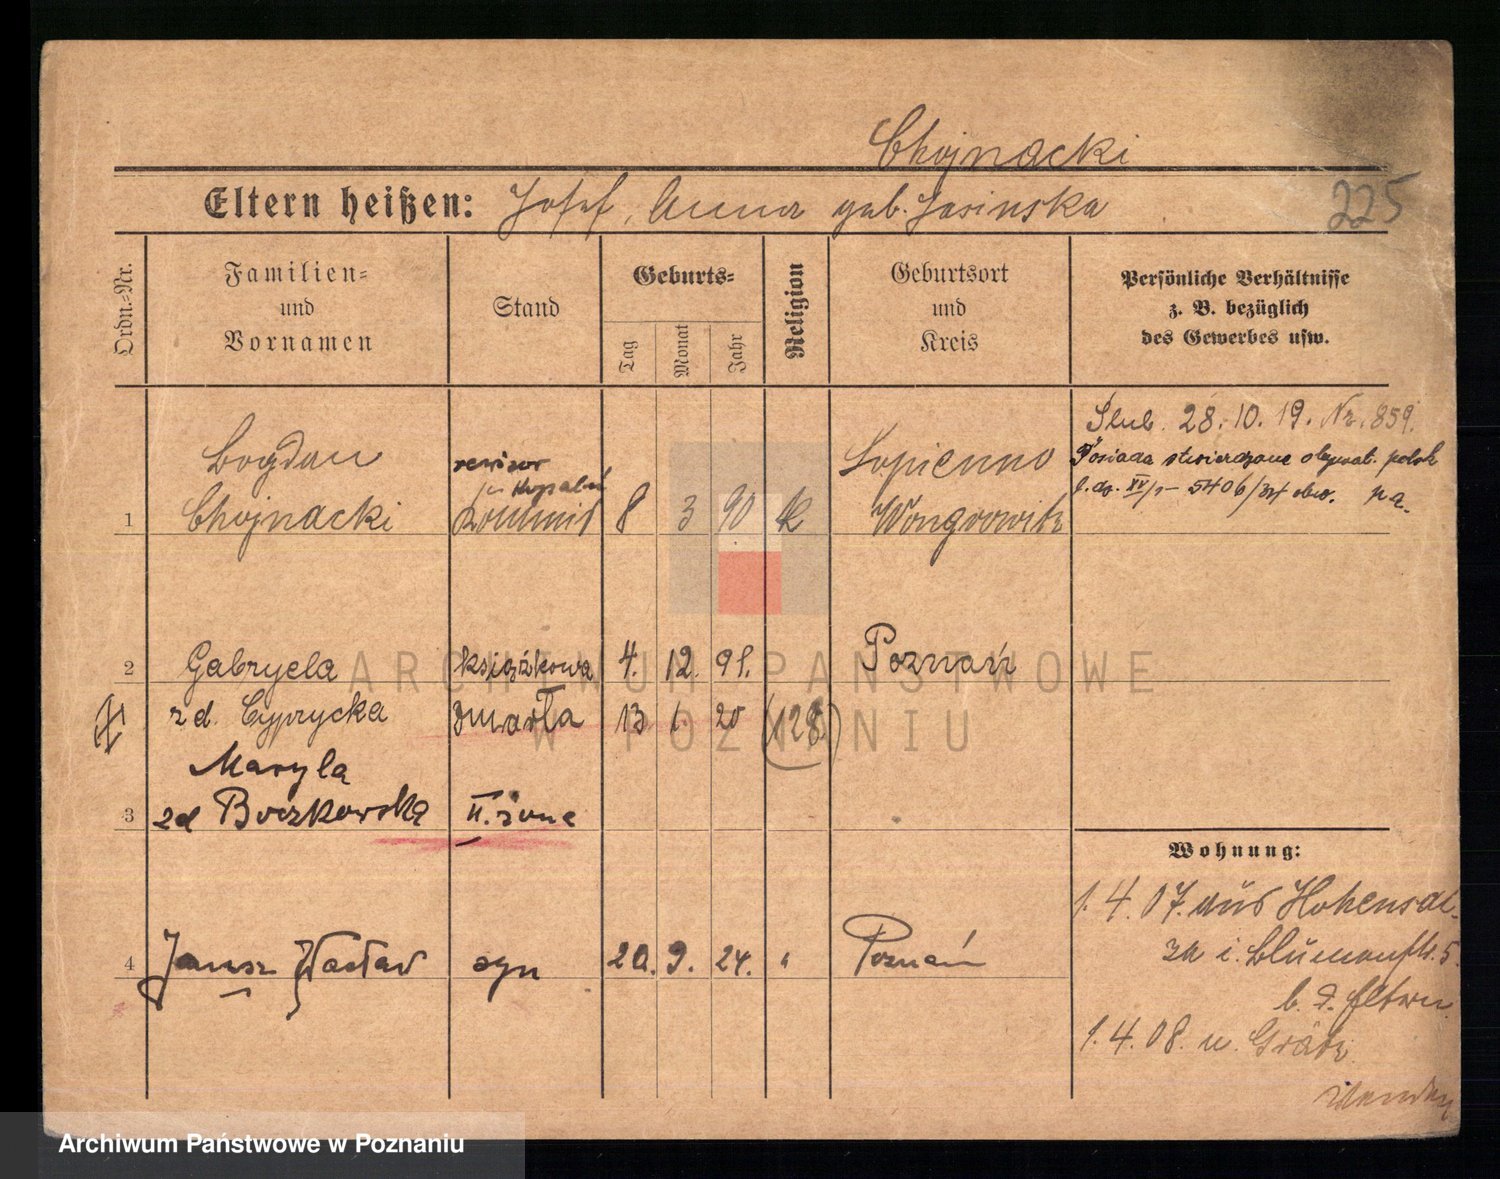 Chojnacki
Eltern heißen: Josef, Anna geb. Jasinska
225
Ordn.-Nr.
Familien-
und
Vornamen
Stand
Geburts-
Tag
Monat
Jahr
Religion
Geburtsort
und
Kreis
Persönliche Verhältnisse
z. B. bezüglich
des Gewerbes usw.
Ślub. 28. 10. 19. Nr. 859.
Posiada stwierdzone obywat. polsk
Bogdan
rewizor
Łopienno
1 Chojnacki 8 3 90 k Wongrowitz
2 Gabryela książkowa 4. 12. 91. Poznań
zd. Cyprycka zmarła 13 1. 20 (128)
Maryla
3 zd Boczkowska II. żona
Wohnung:
1. 4. 07. aus Hohensal-
za i. Blumenstr. 5.
b. d. Eltern.
4 Janusz Wacław syn 20. 9. 24. " Poznań
1. 4. 08. n. Grätz
ARCHIWUM PAŃSTWOWE
W POZNANIU
Archiwum Państwowe w Poznaniu